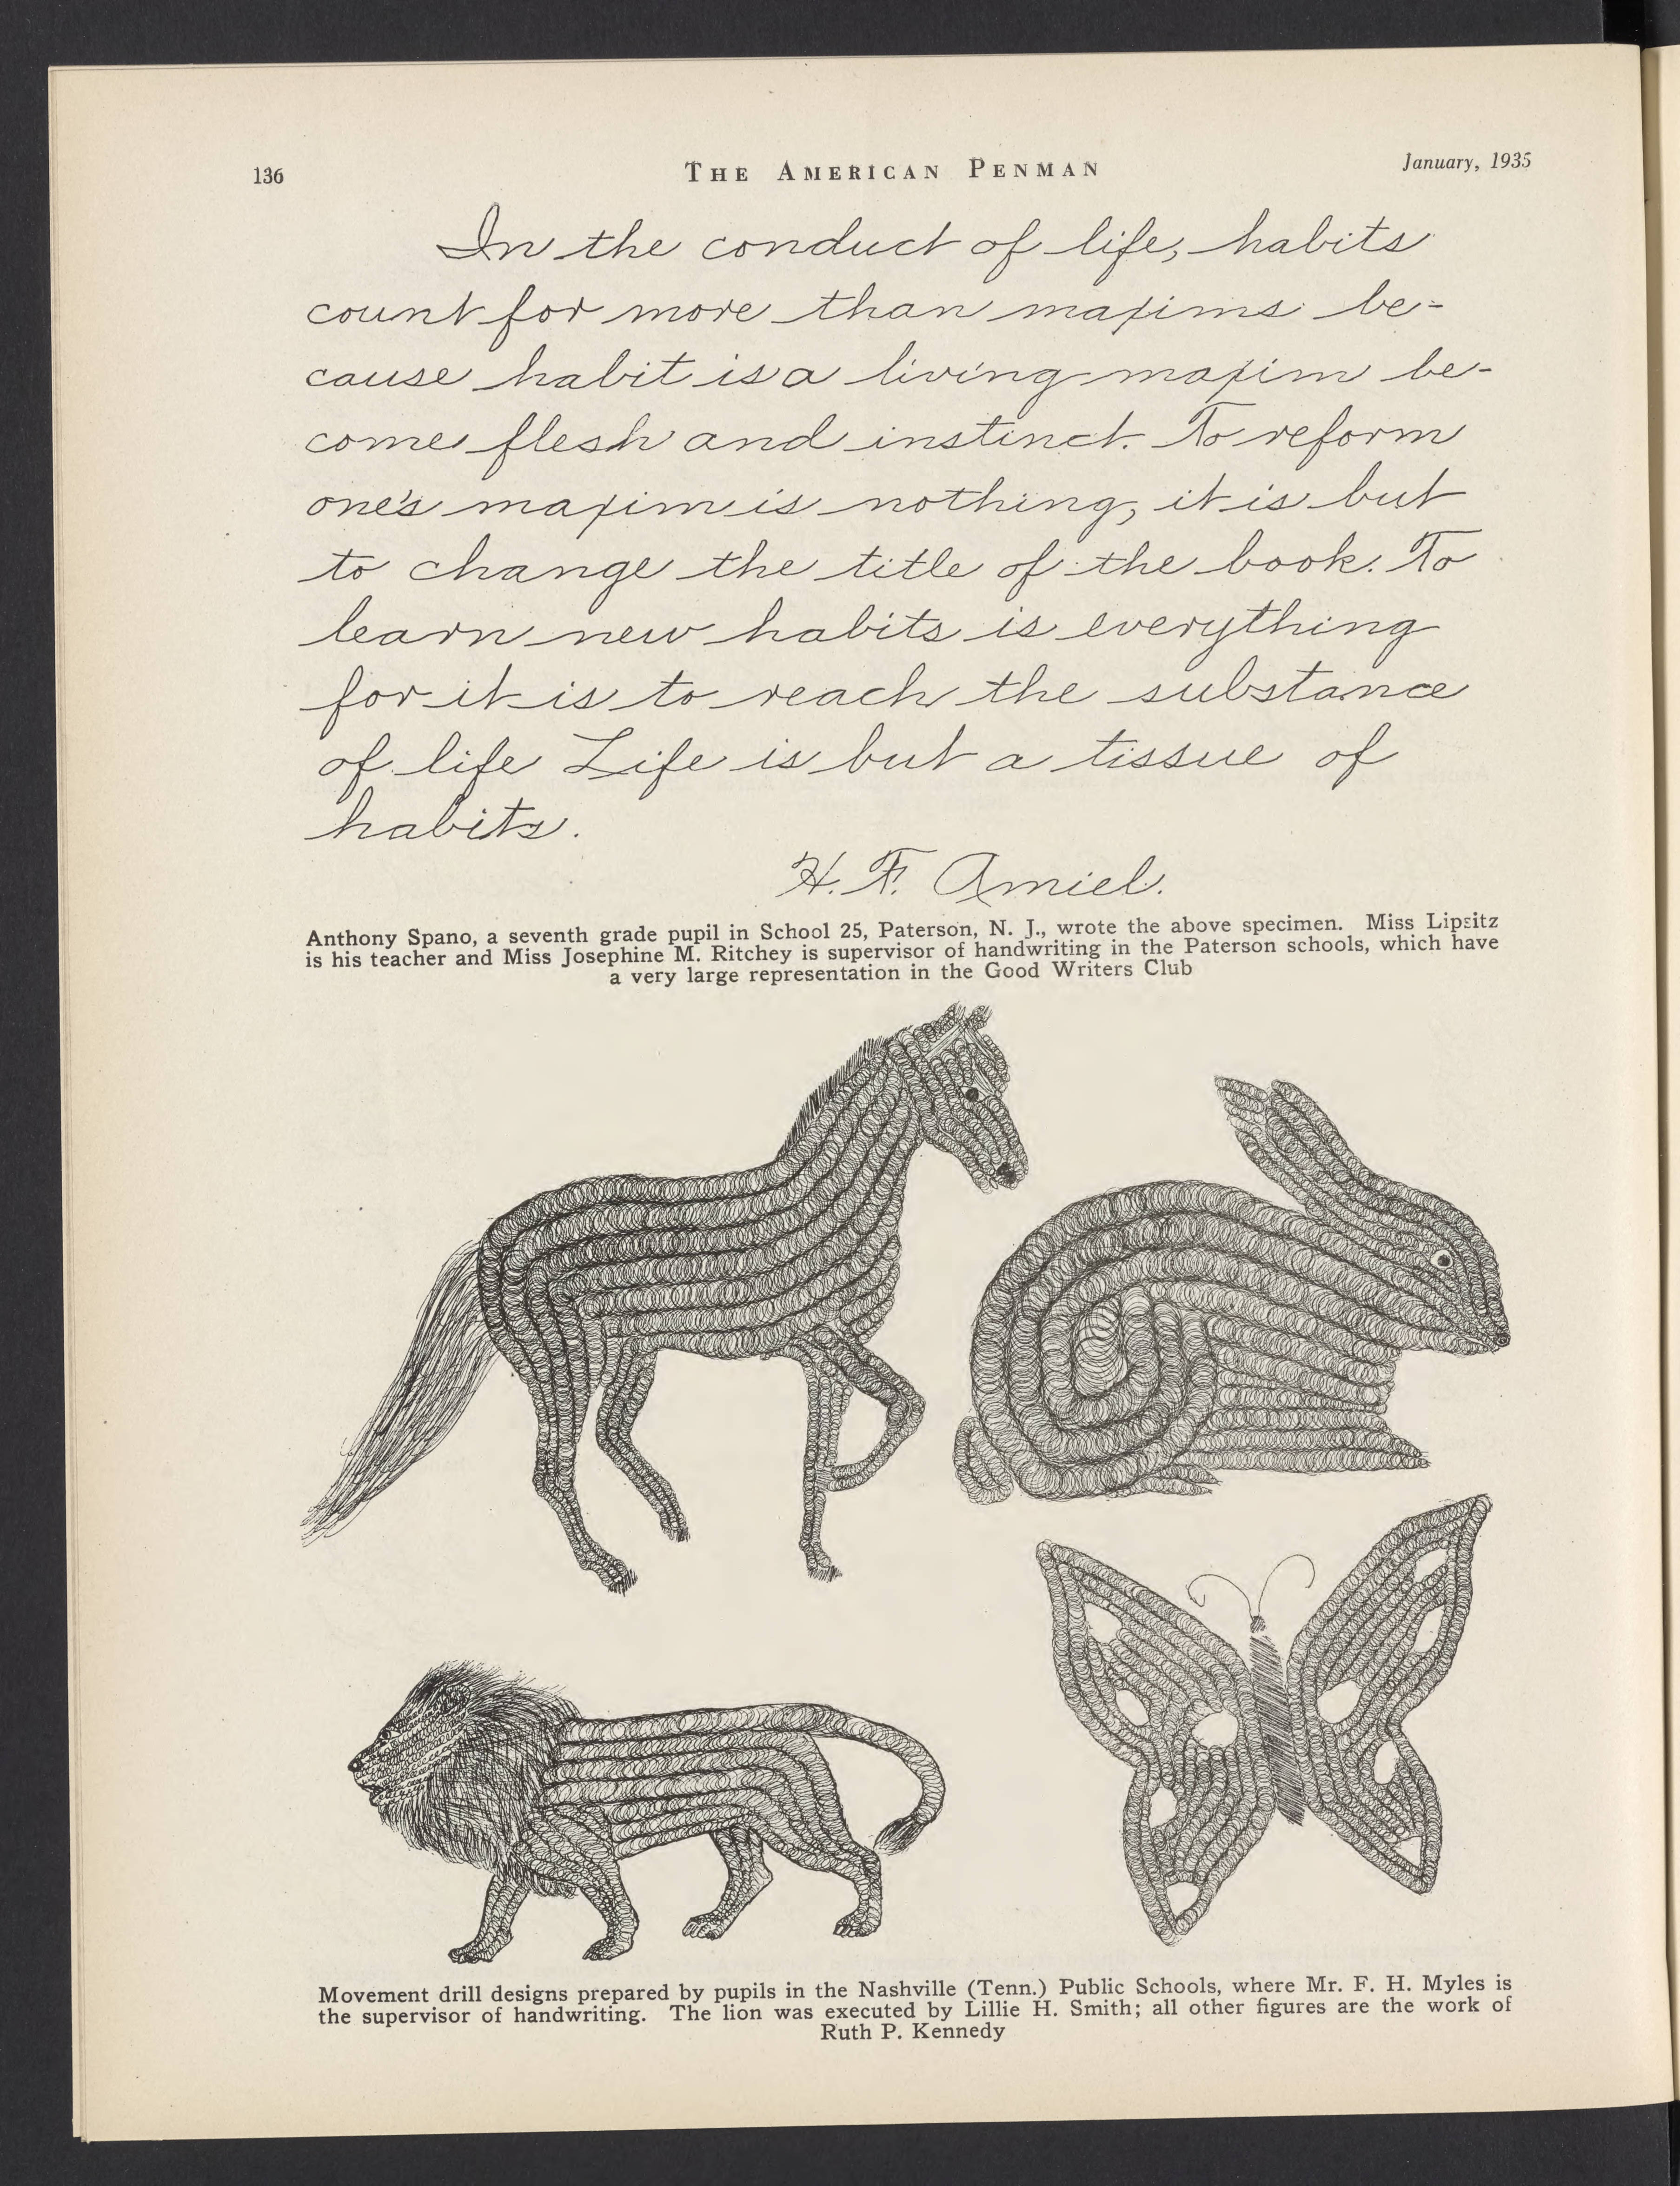 136
THE AMERICAN PENMAN
January, 1935
In the conduct of life, habits
count for more than maxims be-
cause habit is a living maxim be-
come flesh and instinct. To reform
one's maxim is nothing, it is but
to change the title of the book. To
learn new habits is everything
for it is to reach the substance
of life Life is but a tissue of
habits.
H. F. Amiel.
Anthony Spano, a seventh grade pupil in School 25, Paterson, N. J., wrote the above specimen. Miss Lipsitz
is his teacher and Miss Josephine M. Ritchey is supervisor of handwriting in the Paterson schools, which have
a very large representation in the Good Writers Club
Movement drill designs prepared by pupils in the Nashville (Tenn.) Public Schools, where Mr. F. H. Myles is
the supervisor of handwriting. The lion was executed by Lillie H. Smith; all other figures are the work of
Ruth P. Kennedy